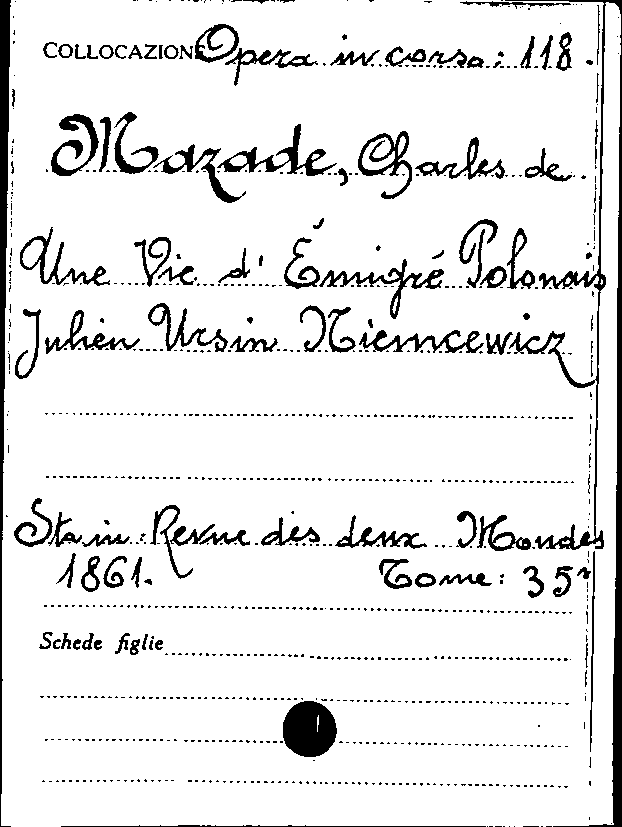 COLLOCAZIONE Opera in corso: 118.
Mazade, Charles de.
Une Vie d' Émigré Polonais
Julien Ursin Niemcewicz
Sta in: Revue des deux Mondes
1861. Tome: 35°
Schede figlie